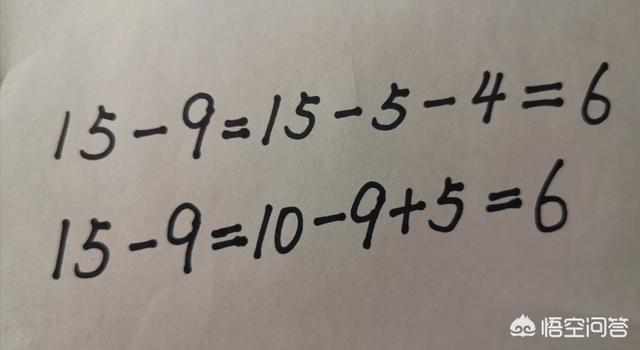 15-9=15-5-4=6
15-9=10-9+5=6
悟空问答